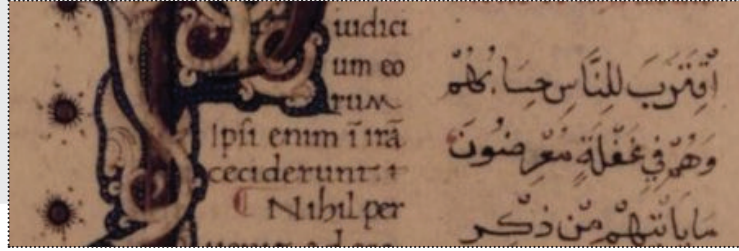 uidici
um eo
rum
Ipsi enim ī irā
ceciderunt
Nihil per
اَقْتَرَبَ لِلنَّاسِ حِسَابُهُمْ
وَهُمْ فِي غَفْلَةٍ مُّعْرِضُونَ
مَا يَاتِيهِمْ مِّن ذِكْرٍ